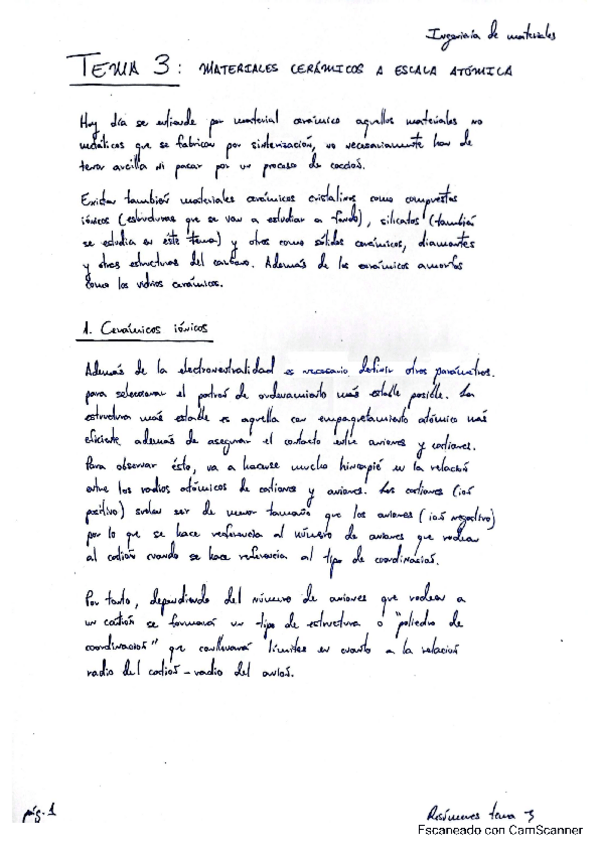 Ingeniería de materiales
TEMA 3: MATERIALES CERÁMICOS A ESCALA ATÓMICA
Hoy día se entiende por material cerámico aquellos materiales no
metálicos que se fabrican por sinterización, no necesariamente han de
tener arcilla ni pasar por un proceso de cocción.
Existen también materiales cerámicos cristalinos como compuestos
iónicos (estructuras que se van a estudiar a fondo), silicatos (también
se estudia en éste tema) y otros como sólidos cerámicos, diamantes
y otras estructuras del carbono. Además de los cerámicos amorfos
como los vidrios cerámicos.
1. Cerámicos iónicos
Además de la electroneutralidad es necesario definir otros parámetros.
para seleccionar el patrón de ordenamiento más estable posible. La
estructura más estable es aquella con empaquetamiento atómico más
eficiente además de asegurar el contacto entre aniones y cationes.
Para observar ésto, va a hacerse mucho hincapié en la relación
entre los radios atómicos de cationes y aniones. Los cationes (ion
positivo) suelen ser de menor tamaño que los aniones (ion negativo)
por lo que se hace referencia al número de aniones que rodean
al catión cuando se hace referencia al tipo de coordinación.
Por tanto, dependiendo del número de aniones que rodean a
un catión se formará un tipo de estructura o "poliedro de
coordinación" que conllevará límites en cuanto a la relación
radio del catión - radio del anión.
pág. 1
Resúmenes tema 3
Escaneado con CamScanner